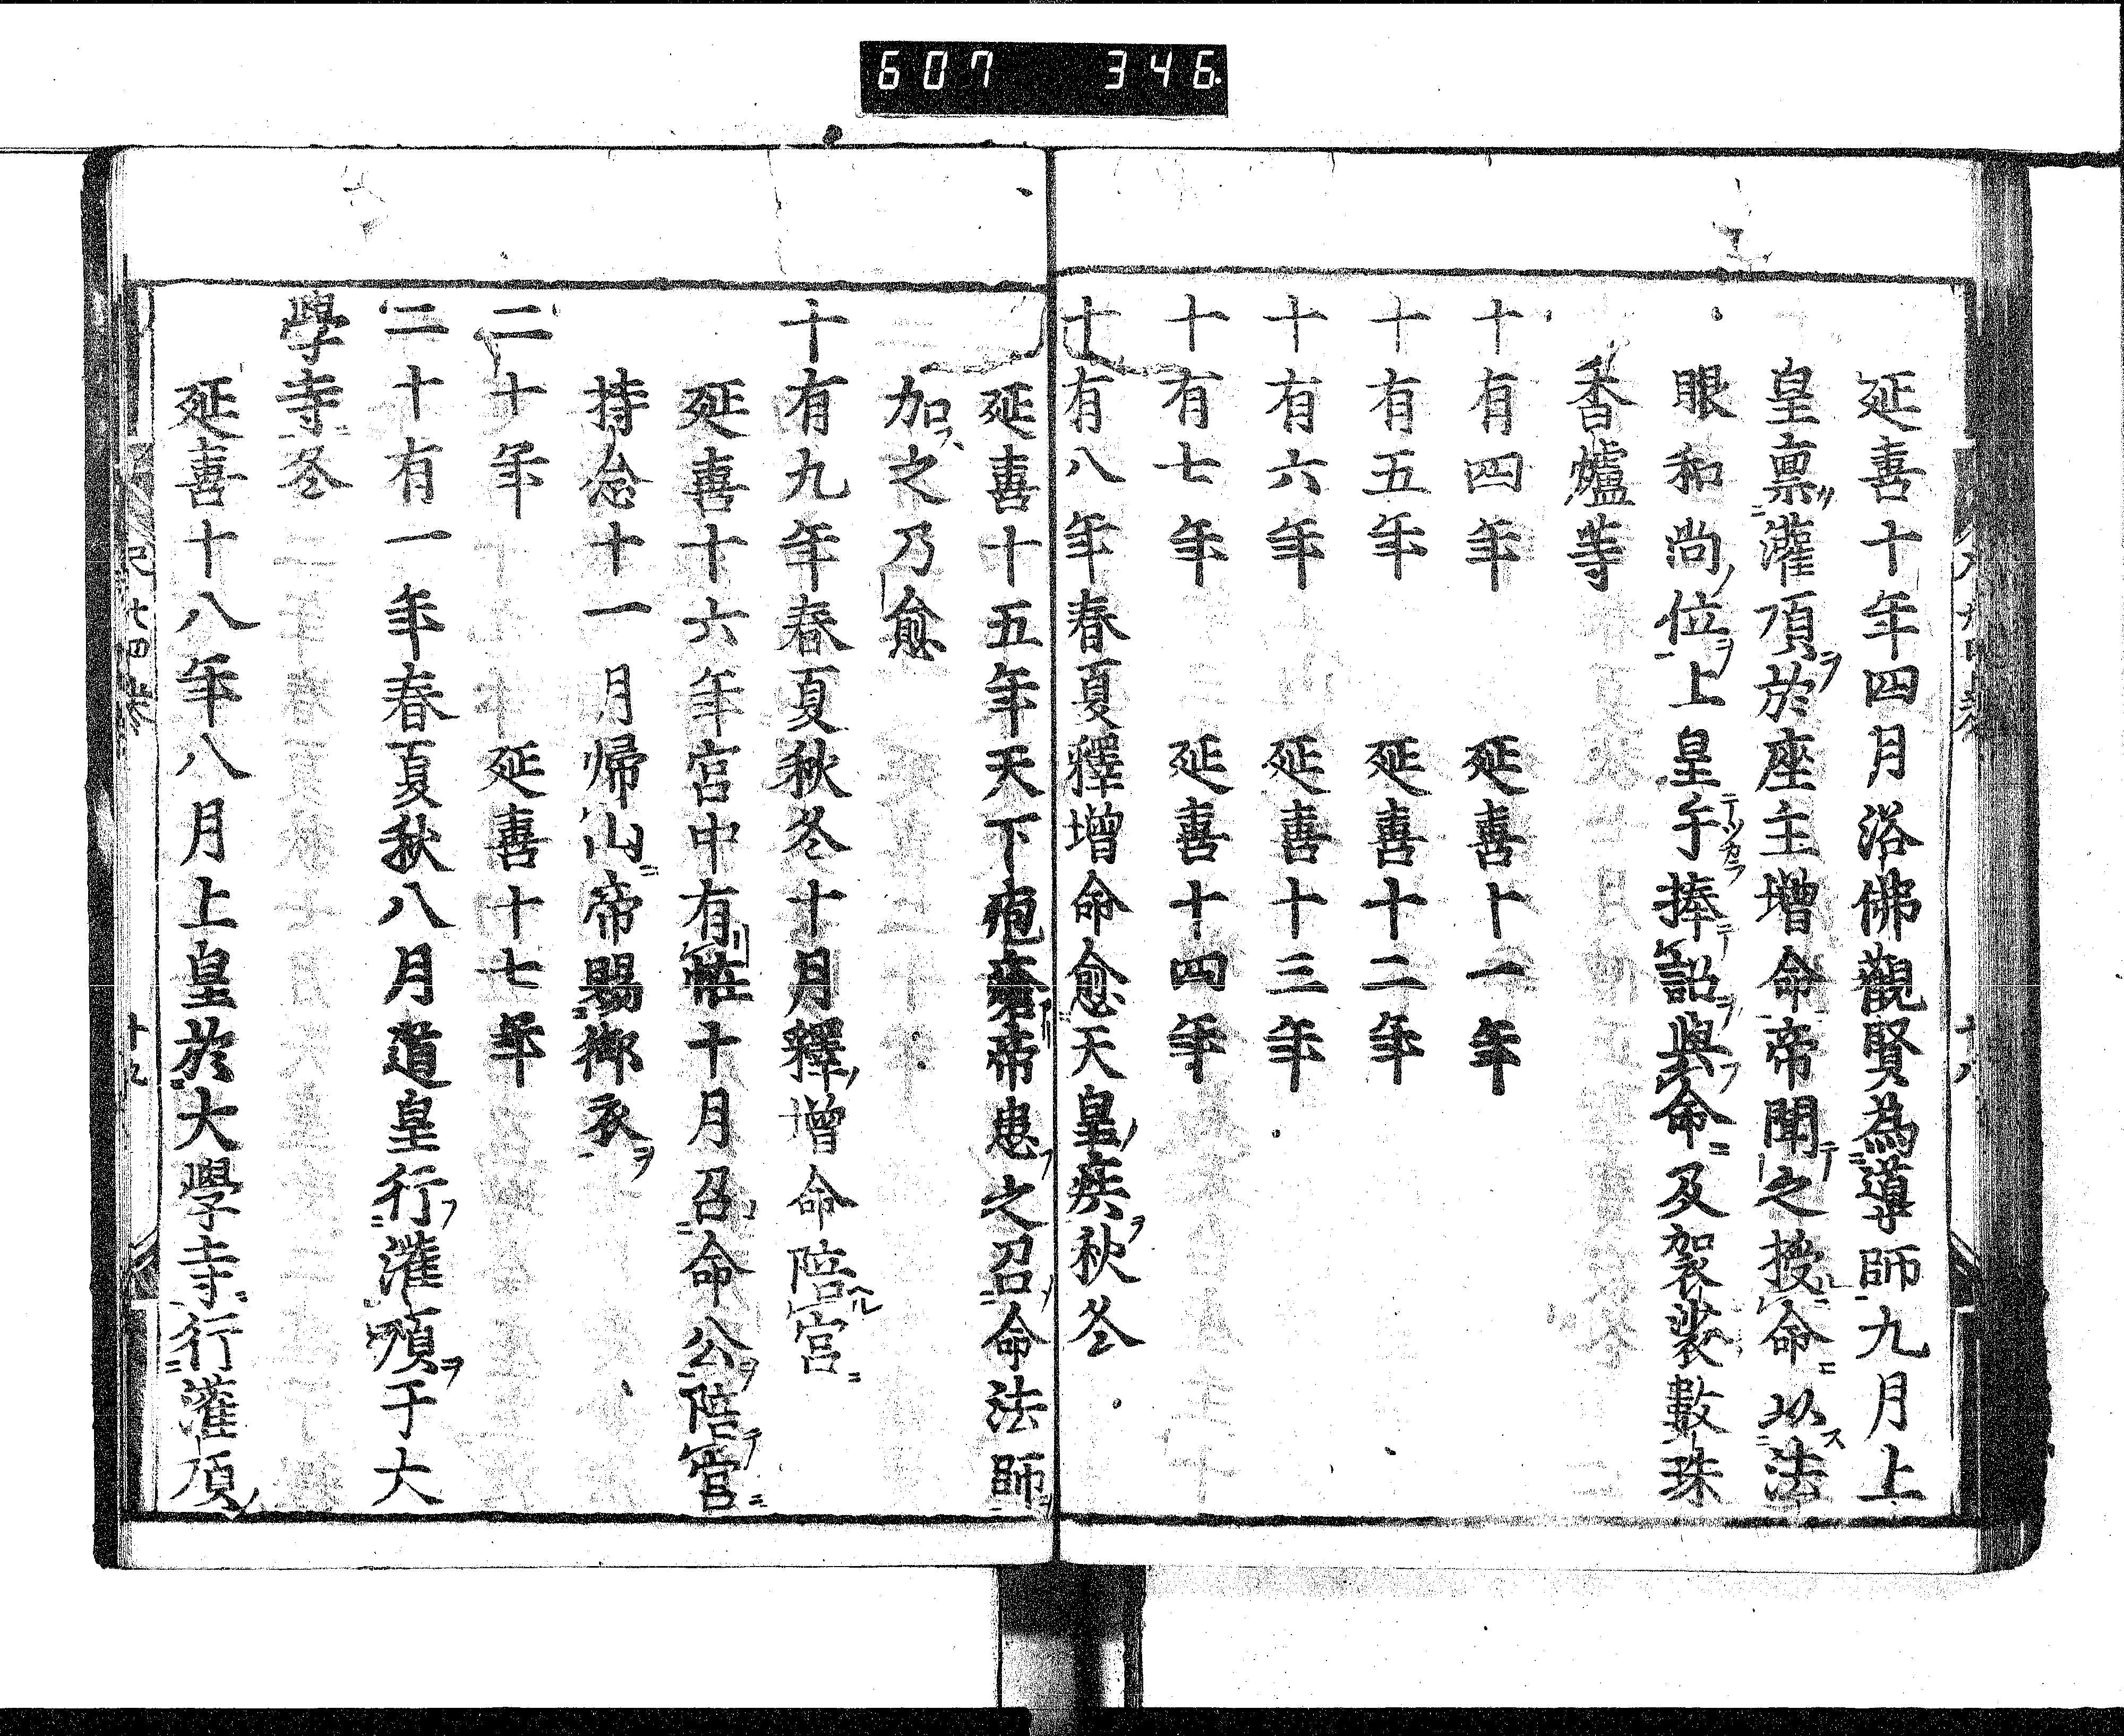 607 346
延喜十年四月浴佛觀賢為導師九月上
皇禀灌頂於座主增命帝聞之授命以法
眼和尚位上皇手捧詔與命及袈裟數珠
香爐等
十有四年 延喜十一年
十有五年 延喜十二年
十有六年 延喜十三年
十有七年 延喜十四年
十有八年春夏釋增命愈天皇疾秋冬
延喜十五年天下疱瘡帝患之召命法師
加之乃愈
十有九年春夏秋冬十月釋增命陪宮
延喜十六年宮中有恠十月召命公陪宮
持念十一月帰山帝賜御衣
二十年 延喜十七年
二十有一年春夏秋八月道皇行灌頂于大
學寺冬
延喜十八年八月上皇於大學寺行灌頂